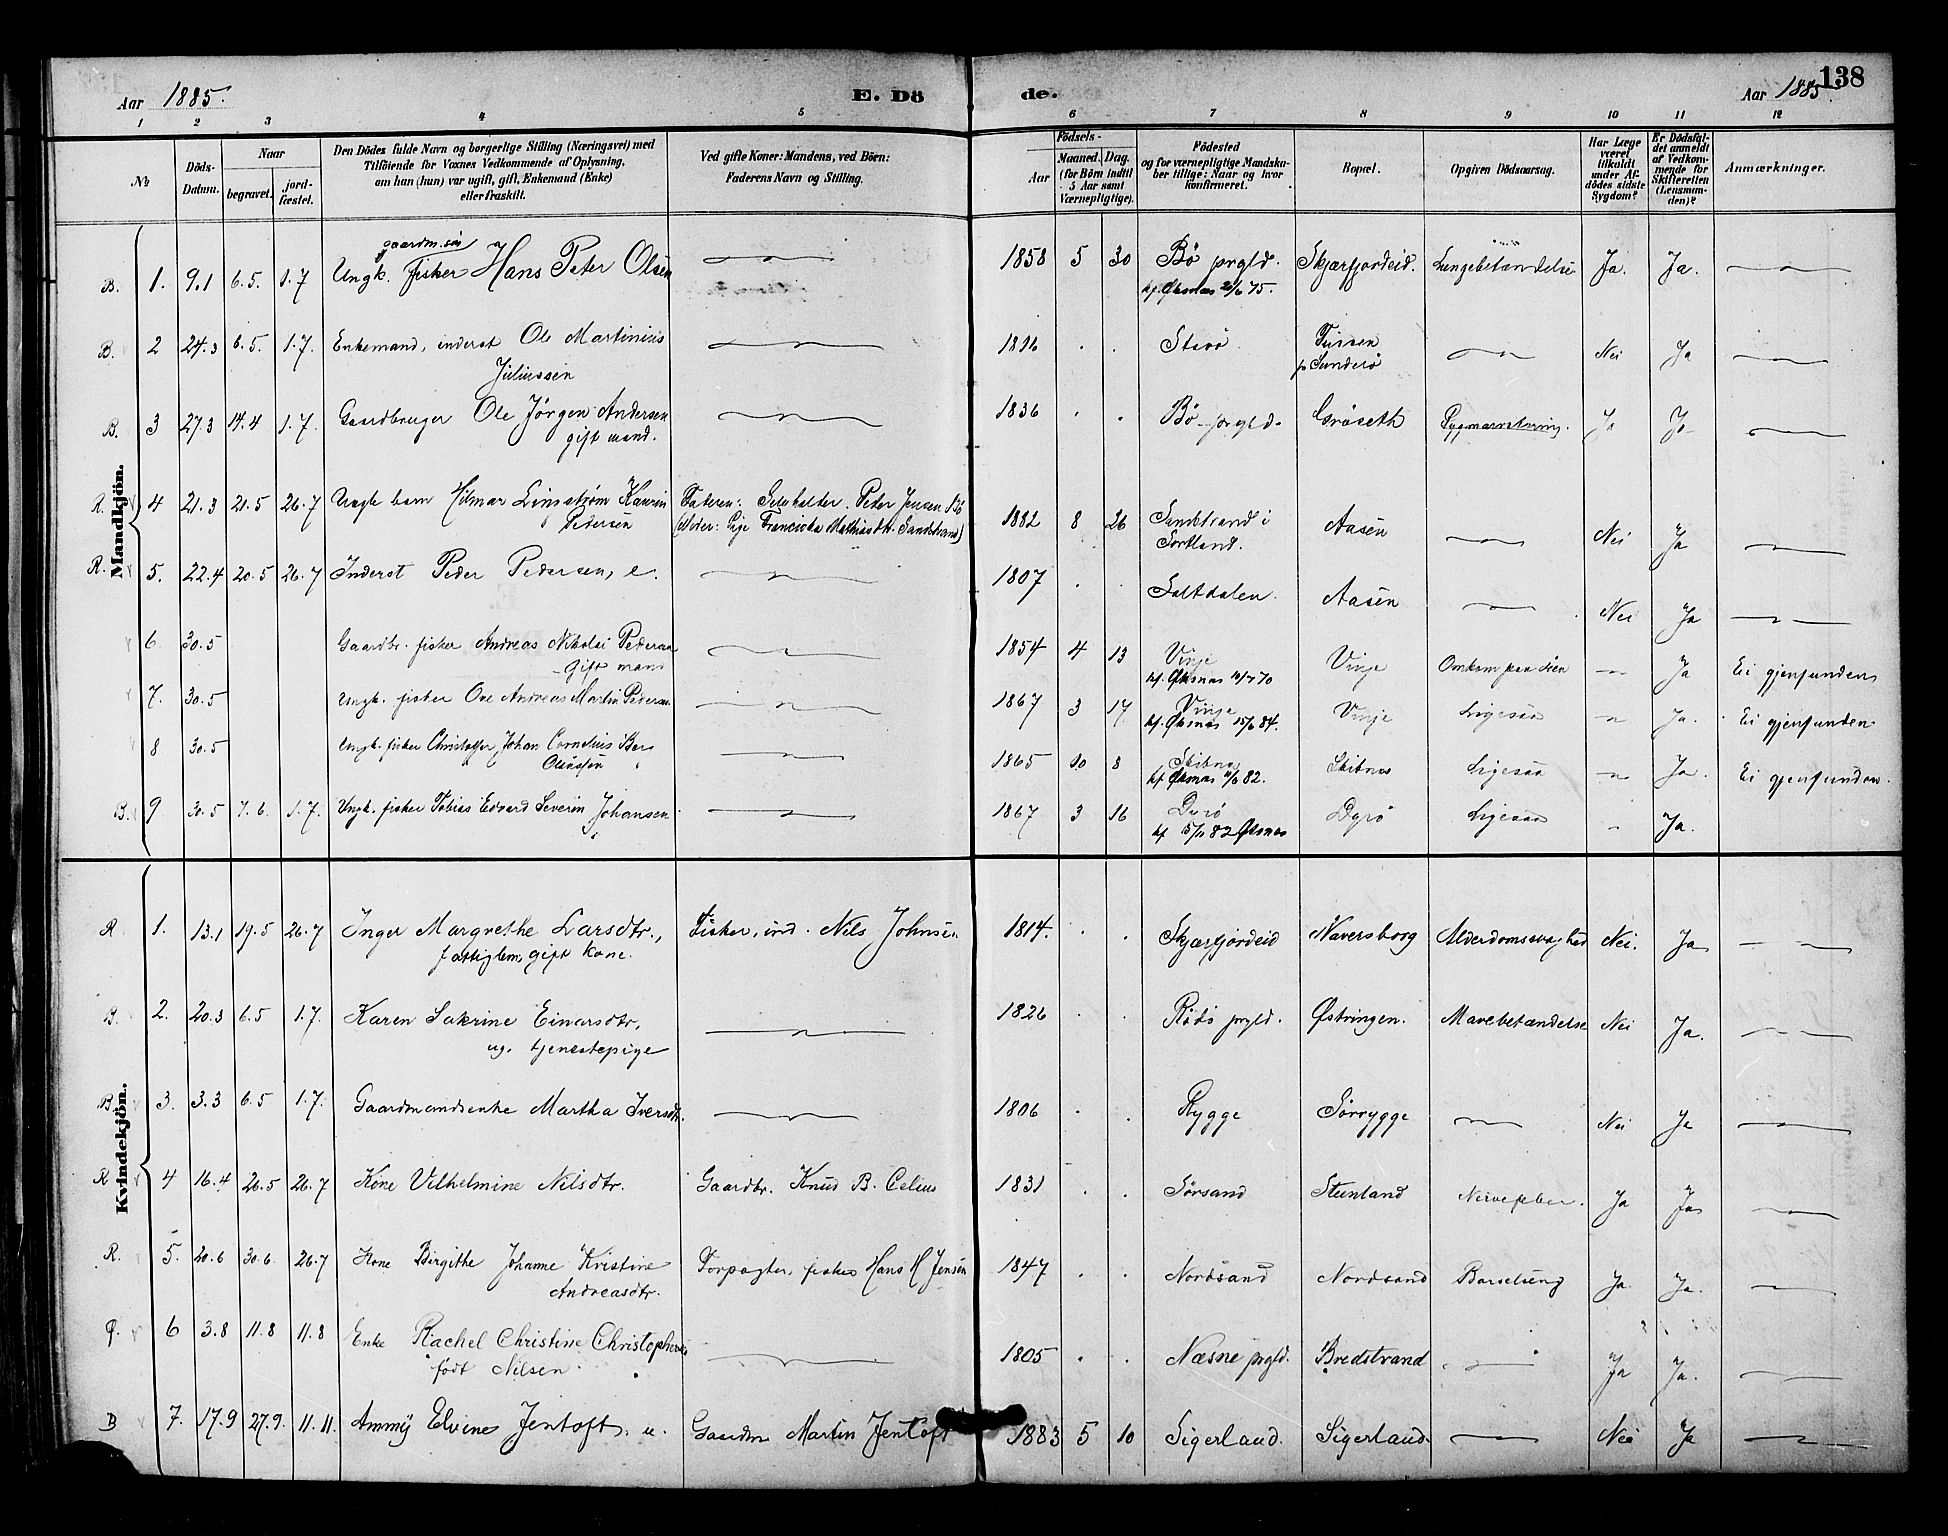 Aar 1885.
E. Dö
de.
Aar 1885.
138
1 2 3 4 5 6 7 8 9 10 11 12
№
Döds-Datum.
Naar
begravet.
jord-fæstet.
Den Dödes fulde Navn og borgerlige Stilling (Næringsvei) med
Tilföiende for Voxnes Vedkommende af Oplysning,
om han (hun) var ugift, gift, Enkemand (Enke)
eller fraskilt.
Ved gifte Koner: Mandens, ved Börn:
Faderens Navn og Stilling.
Födsels-
Aar
Maaned. Dag.
(for Börn indtil
5 Aar samt
Værnepligtige).
Födested
og for værnepligtige Mandsku-
ber tillige: Naar og hvor
konfirmeret.
Bopæl.
Opgiven Dödsaarsag.
Har Læge
været
tilkaldt
under Af-
dödes sidste
Sygdom?
Er Dödsfal-
det anmeldt
af Vedkom-
mende for
Skifteretten
(Lensman-
den)?
Anmærkninger.
Mandkjön.
B. 1. 9.1 6.5. 1.7 Ungk. gaardm. sön Fisker Hans Peter Olsen 1858 5 30 Bö prgld. Skjærfjordeid. Lungebetændelse Ja. Ja.
kf. Øksnæs 20/6 75.
B. 2 24.3 6.5. 1.7. Enkemand, inderst Ole Martinius Nei Ja
Juliussen
B. 3 27.3 14.4 1.7. Gaardbruger Ole Jörgen Andersen 1836 Bö prgld. Gröseth Ja Ja
gift mand.
R. 4 21.3 21.5 26.7 Ungk barn Hilmar Linström Kaurin Faderen: Peter Jensen 1882 8 26 Sandstrand i Aasen Nei Ja
Pedersen Franciska Mathiasdtr. Sandstrand) Sortland.
R. 5. 22.4 20.5 26.7 Inderst Peder Pedersen, e. 1807 Saltdalen. Aasen Nei Ja
6 30.5 Gaardbr. fisker Andreas Nikolai Pedersen 1854 4 13 Vinje Vinje Omkom paa söen Ja Ei gjenfunden
gift mand kf. Øksnæs
7. 30.5 Ungk. fisker Ove Andreas Martin Pedersen 1867 3 17 Vinje Vinje Ligesaa Ja. Ei gjenfunden
kf. Øksnæs 15/6 84.
8 30.5 Ungk. fisker Christoffer Johan Cornelius Berg 1865 10 8 Skibnæs Skibnæs Ligesaa Ja. Ei gjenfunden.
Olaussen kf. Øksnæs 82.
B. 9 30.5 7.6. 1.7. Ungk. fisker Tobias Edvard Severin Johansen 1867 3 16 Dyrö Dyrö Ligesaa Ja.
kf. 82 Øksnæs
Kvindekjön.
R 1. 13.1 19.5 26.7 Inger Margrethe Larsdtr., Fisker, ind. Nils Johnsen 1814. Skjærfjordeid Naversborg Alderdomssvaghed Nei. Ja
fattiglem, gift Kone.
B. 2. 20.3 6.5 1.7. Karen Sakrine Einarsdtr, 1826 Rödö prgld. Østringen. Mavebetændelse Nei Ja.
ug. tjenestepige
B. 3. 3.3 6.5 1.7. Gaardmandsenke Martha Iversdtr. 1806 Rygge Sörrygge Nei Ja
R 4 16.4 26.5 26.7 Kone Vilhelmine Nilsdtr. Gaardbr. Knud B. Celius 1831 Sörsand Steinland Nervefeber. Ja Ja
R. 5. 20.6 30.6. 26.7 Kone Birgithe Johanne Kristine Forpagter, fisker Hans H Jensen 1847 Nordsand Nordsand Barselseng Ja Ja.
Andreasdtr.
6 3.8 11.8 11.8 Enke Rachel Christine Christophersen 1805 Næsne prgld. Bredstrand Ja Ja.
født Nilsen
B 7. 17.9 27.9. 11.11. Ammy Elvine Jentoft. u. Gaardm Martin Jentoft 1883 5 10 Sigerland. Sigerland. Nei Ja